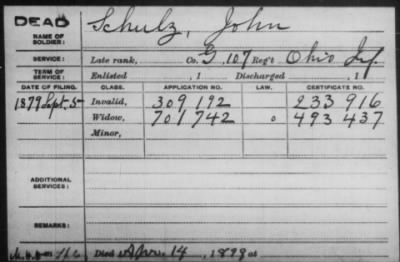 DEAD Schulz, John
NAME OF SOLDIER:
SERVICE: Late rank, Co. G. 107 Reg't Ohio Inf.
TERM OF SERVICE: Enlisted , 1 Discharged , 1
DATE OF FILING. CLASS. APPLICATION NO. LAW. CERTIFICATE NO.
1879 Sept. 5 Invalid, 309 192 233 916
Widow, 701 742 o 493 437
Minor,
ADDITIONAL SERVICES:
REMARKS:
Died Nov. 14, 1899 at